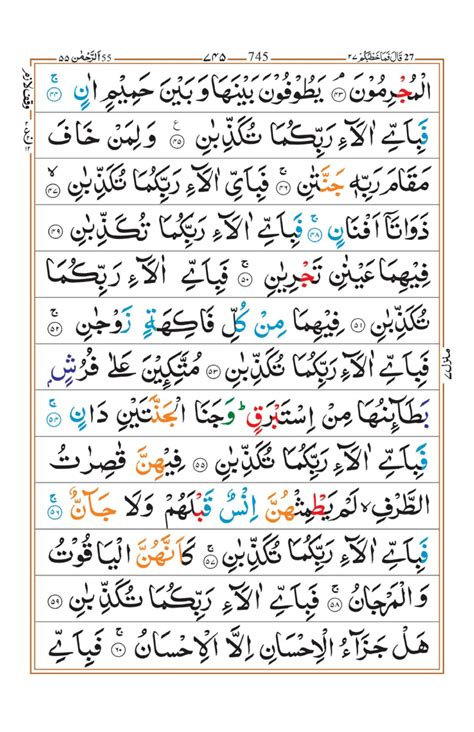 27 قَالَ فَمَا خَطْبُكُمْ ٢٧ 745 ٧٤٥ 55 اَلرَّحْمٰن ٥٥
الْمُجْرِمُوْنَ ۘ ﴿۴۳﴾ يَطُوْفُوْنَ بَيْنَهَا وَ بَيْنَ حَمِيْمٍ اٰنٍ ۚ ﴿۴۴﴾
فَبِاَيِّ اٰلَآءِ رَبِّكُمَا تُكَذِّبٰنِ ﴿۴۵﴾ وَ لِمَنْ خَافَ
مَقَامَ رَبِّهٖ جَنَّتٰنِ ۚ ﴿۴۶﴾ فَبِاَيِّ اٰلَآءِ رَبِّكُمَا تُكَذِّبٰنِ ۙ ﴿۴۷﴾
ذَوَاتَاۤ اَفْنَانٍ ۚ ﴿۴۸﴾ فَبِاَيِّ اٰلَآءِ رَبِّكُمَا تُكَذِّبٰنِ ﴿۴۹﴾
فِيْهِمَا عَيْنٰنِ تَجْرِيٰنِ ۚ ﴿۵۰﴾ فَبِاَيِّ اٰلَآءِ رَبِّكُمَا
تُكَذِّبٰنِ ﴿۵۱﴾ فِيْهِمَا مِنْ كُلِّ فَاكِهَةٍ زَوْجٰنِ ۚ ﴿۵۲﴾
فَبِاَيِّ اٰلَآءِ رَبِّكُمَا تُكَذِّبٰنِ ﴿۵۳﴾ مُتَّكِـِٕيْنَ عَلٰى فُرُشٍۭ
بَطَآئِنُهَا مِنْ اِسْتَبْرَقٍ ؕ وَ جَنَا الْجَنَّتَيْنِ دَانٍ ۚ ﴿۵۴﴾
فَبِاَيِّ اٰلَآءِ رَبِّكُمَا تُكَذِّبٰنِ ﴿۵۵﴾ فِيْهِنَّ قٰصِرٰتُ
الطَّرْفِ ۙ لَمْ يَطْمِثْهُنَّ اِنْسٌ قَبْلَهُمْ وَ لَا جَآنٌّ ۚ ﴿۵۶﴾
فَبِاَيِّ اٰلَآءِ رَبِّكُمَا تُكَذِّبٰنِ ۚ ﴿۵۷﴾ كَاَنَّهُنَّ الْيَاقُوْتُ
وَ الْمَرْجَانُ ۚ ﴿۵۸﴾ فَبِاَيِّ اٰلَآءِ رَبِّكُمَا تُكَذِّبٰنِ ﴿۵۹﴾
هَلْ جَزَآءُ الْاِحْسَانِ اِلَّا الْاِحْسَانُ ۚ ﴿۶۰﴾ فَبِاَيِّ
وقف لازم
منزل ٧